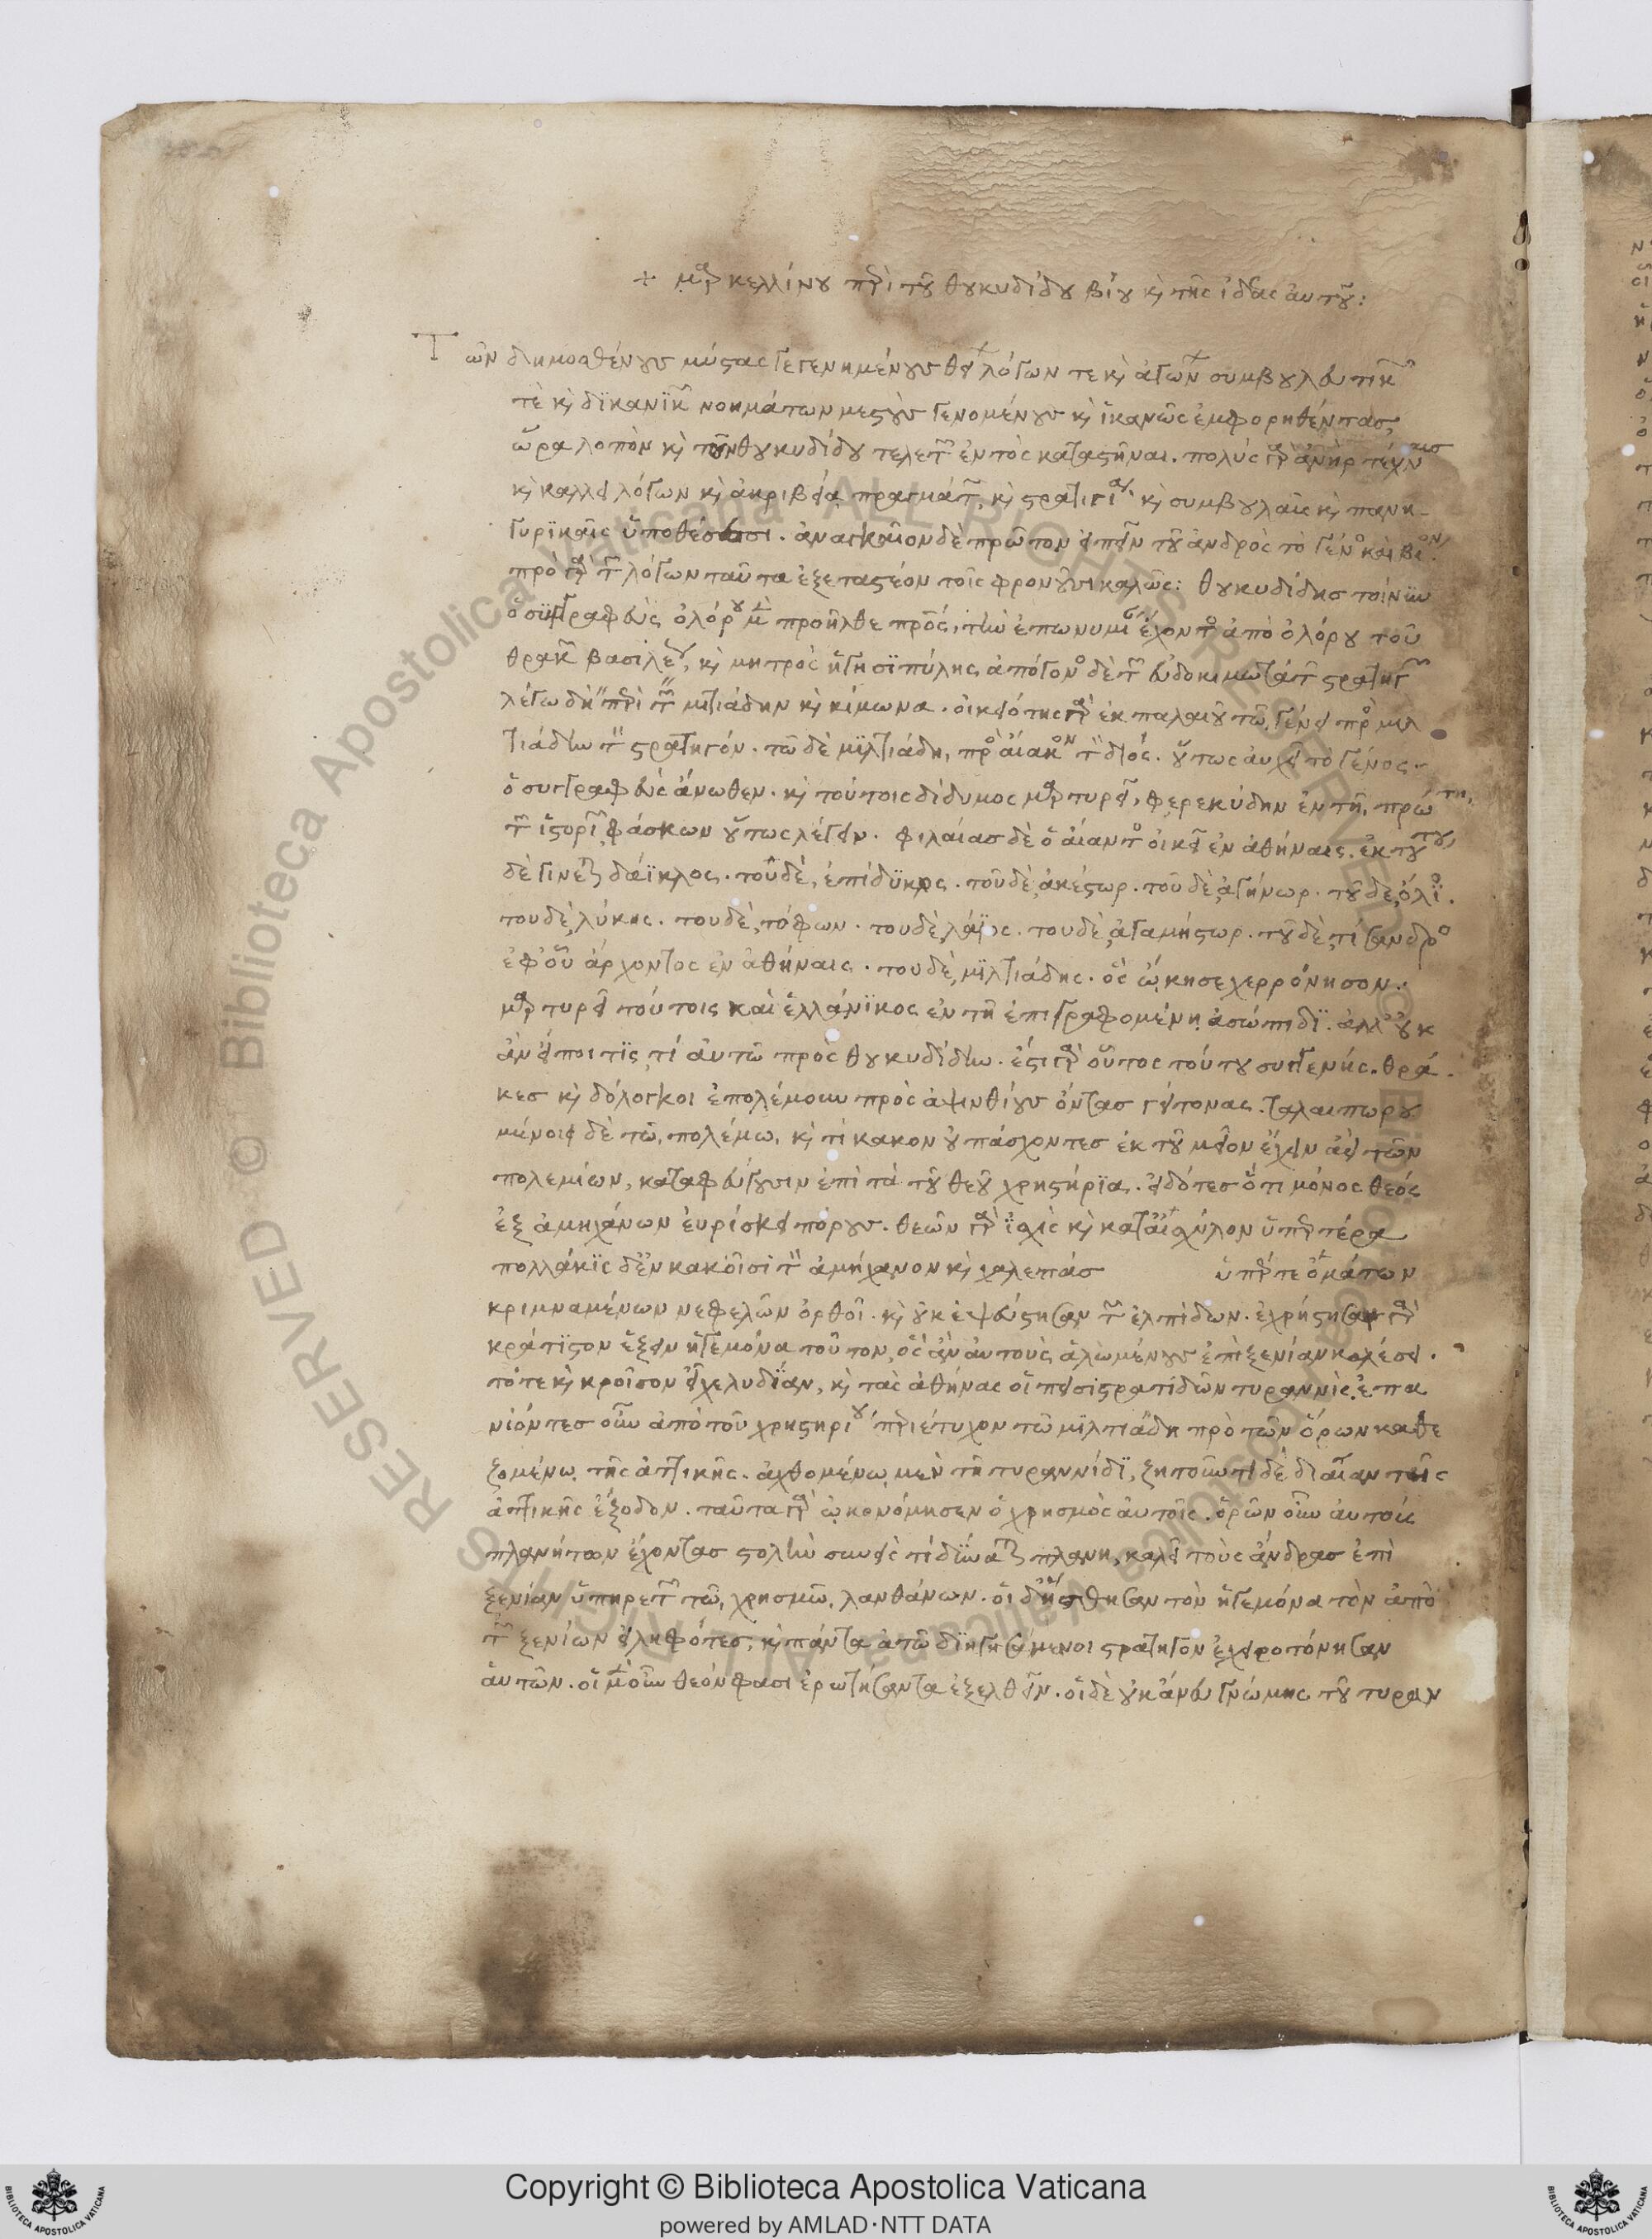 + μαρκελλίνου περὶ τοῦ θουκυδίδου βίου κ(αὶ) τῆς ἰδέας αὐτοῦ:
Τῶν δημοσθένους μύστας γεγενημένους θείων λόγων τε κ(αὶ) ἀγώνων συμβουλευτικῶν
τὲ κ(αὶ) δϊκανϊκῶν νοημάτων μεστοὺς γενομένους κ(αὶ) ἱκανῶς ἐμφορηθέντας,
ὥρα λοπὸν κ(αὶ) τῶν θουκυδίδου τελετῶν ἐντὸς καταστῆναι. πολὺς γὰρ ἀνὴρ τέχναις
κ(αὶ) καλλει λόγων κ(αὶ) ἀκριβεία πραγμάτων, κ(αὶ) στρατιγίαις κ(αὶ) συμβουλαῖς κ(αὶ) πανη-
γυρϊκαῖς ὑποθέσεσι. ἀναγκαῖον δὲ πρῶτον εἰπεῖν τοῦ ἀνδρὸς τὸ γένος καὶ βίον.
πρὸ γὰρ τῶν λόγων ταῦτα ἐξεταστέον τοῖς φρονοῦσι καλῶς: θουκυδίδης τοίνυν
ὁ συγγραφεὺς ὀλόρου μὲν προῆλθε πρὸς, τὴν ἐπωνυμίαν ἔχοντος ἀπὸ ὀλόρου τοῦ
θρακῶν βασιλέως, κ(αὶ) μητρὸς ἡγησϊπύλης ἀπόγονος δὲ τῶν εὐδοκιμωτάτων στρατηγῶν
λέγω δὴ περὶ τῶν μιλτιάδην κ(αὶ) κίμωνα. οἰκειότης γὰρ ἐκ παλαιοῦ τῶ γένει πρὸς μιλ
τιάδην τὸν στρατηγόν. τῶ δὲ μϊλτιάδη, πρὸς αἰακὸν τὸν διός. οὕτως αὐχεῖ τὸ γένος
ὁ συγγραφεὺς ἄνωθεν. κ(αὶ) τούτοις δίδυμος μαρτυρεῖ, φερεκύδην ἐν τῆ πρώτη
τῶν ἱστοριῶν φάσκων οὕτως λέγειν. φιλαίας δὲ ὁ αἴαντος οἰκεῖ ἐν ἀθήναις. ἐκ τούτου
δὲ γίνεται δάϊκλος. τοῦ δὲ, ἐπίδϋκος. τοῦ δὲ, ἀκέστωρ. τοῦ δὲ, ἀγήνωρ. τοῦ δε, όλϊος.
του δὲ, λύκης. του δὲ, τόφων. του δὲ, λάϊος. του δὲ, ἀγαμήστωρ. τοῦ δὲ, τίσανδρος
ἐφ οὗ ἄρχοντος ἐν ἀθήναις. του δὲ, μϊλτιάδης. ὃς ᾤκησε χερρόνησον.
μαρτυρεῖ τούτοις καὶ ἑλλάνϊκος ἐν τῆ ἐπιγραφομένη ἀσώπιδϊ. ἀλλ' οὐκ
ἂν εἴποι τϊς, τί αὐτῶ πρὸς θουκυδίδην. ἔστι γὰρ οὗτος τούτου συγγενής. θρά
κες κ(αὶ) δόλογκοι ἐπολέμουν πρὸς ἀψινθίους ὄντας γείτονας. ταλαιπωρού
μένοι δὲ τῶ πολέμω, κ(αὶ) τί κακον οὐ πάσχοντες ἐκ τοῦ μεῖον ἔχειν ἀεὶ τῶν
πολεμίων, καταφεύγουσιν ἐπὶ τὰ τοῦ θεοῦ χρηστήρϊα. εἰδότες ὅτι μόνος θεός
ἐξ ἀμηχάνων εὑρίσκει πόρους. θεῶν γὰρ ἰσχὺς κ(αὶ) κατ' αἰσχύλον ὑπερτέρα
πολλάκϊς δ' ἐν κακοῖσι τὸν ἀμήχανον κ(αὶ) χαλεπάς ὑπέρ τε ὀμμάτων
κριμναμένων νεφελῶν ὀρθοῖ. κ(αὶ) οὐκ ἐψεύσθησαν τῶν ἐλπίδων. ἐχρήσθησαν γὰρ
κράτϊστον ἕξειν ἡγεμόνα τοῦτον, ὃς ἂν αὐτοὺς ἀλωμένους ἐπὶ ξενίαν καλέσει.
τότε κ(αὶ) κροῖσον εἶχε λυδίαν, κ(αὶ) τὰς ἀθήνας οἱ πεισιστρατιδῶν τυραννίς. ἐπα
νιόντες οὖν ἀπὸ τοῦ χρηστηρίου περιέτυχον τῶ μϊλτιάδη πρὸ τῶν ὅρων καθε
ζομένω τῆς ἀττικῆς. ἀχθομένω μὲν τῆ τυραννίδϊ, ζητοῦντι δὲ δικαίαν τῆς
ἀττικῆς ἔξοδον. ταῦτα γὰρ ᾠκονόμησεν ὁ χρησμὸς αὐτοῖς. ὁρῶν οὖν αὐτούς
πλανήτων ἔχοντας στολὴν συνεὶς τί δύναται πλάνη, καλεῖ τοὺς ἄνδρας ἐπὶ
ξενίαν ὑπηρετῶν τῶ χρησμῶ λανθάνων. οἱ δ' ἥσθησαν τὸν ἡγεμόνα τὸν ἀπὸ
τῶν ξενίων εἰληφότες, κ(αὶ) πάντα αὐτῶ διηγησάμενοι στρατηγὸν ἐχειροτόνησαν
αὐτῶν. οἱ μὲν οὖν θεόν φασι ἐρωτήσαντα ἐξελθεῖν. οἱ δὲ οὐκ ἄνευ γνώμης τοῦ τυραν
Copyright © Biblioteca Apostolica Vaticana
powered by AMLAD·NTT DATA